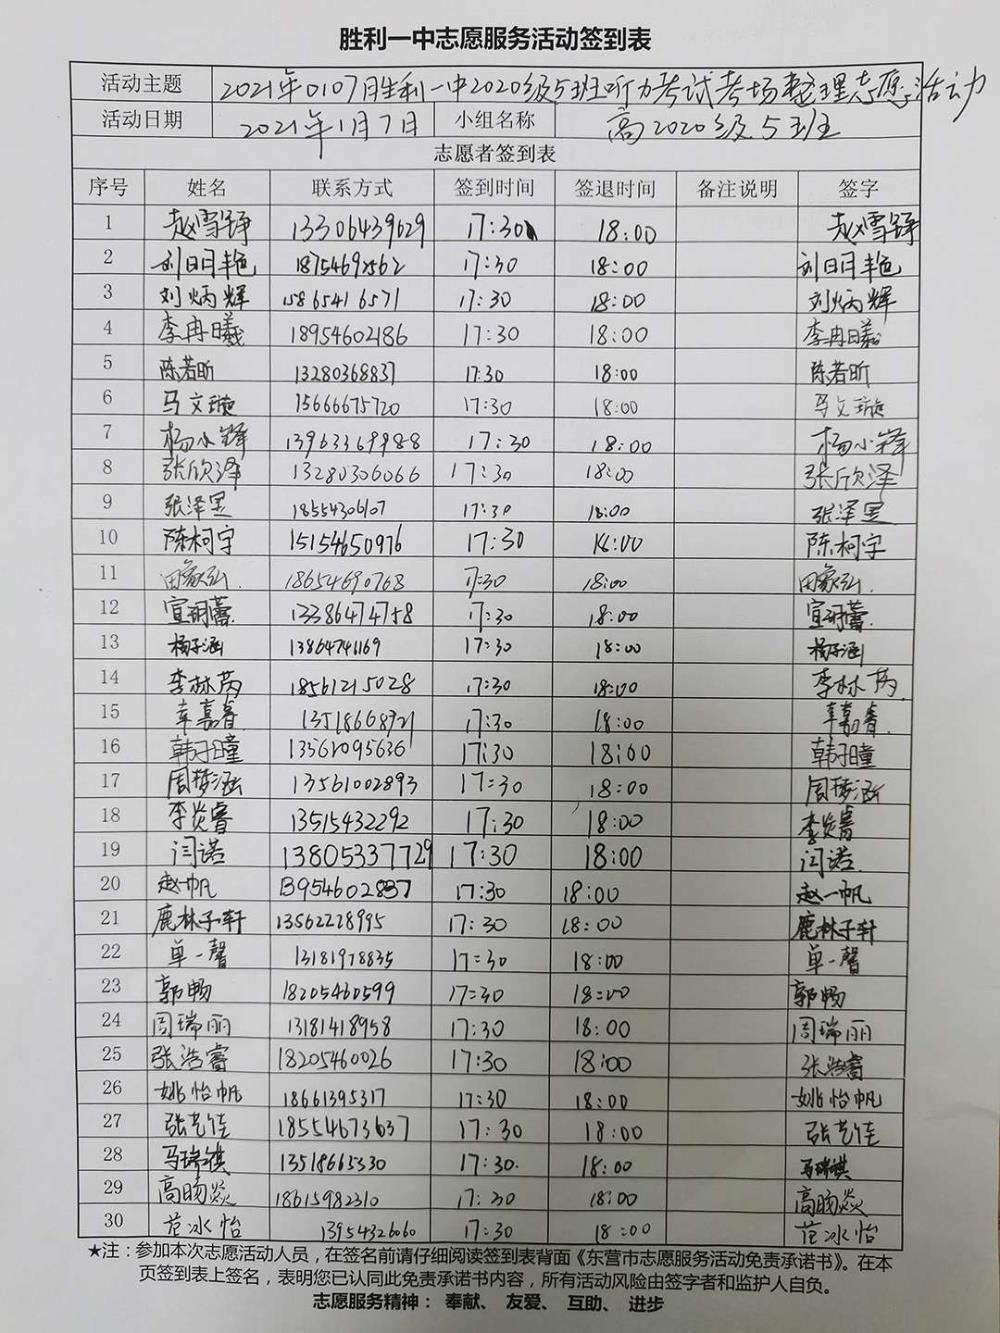 胜利一中志愿服务活动签到表
活动主题 2021年0107月胜利一中2020级5班听力考试考场整理志愿活动
活动日期 2021年1月7日 小组名称 高2020级5班
志愿者签到表
序号 姓名 联系方式 签到时间 签退时间 备注说明 签字
1 赵雪铮 13306439629 17:30 18:00 赵雪铮
2 刘明艳 18754692562 17:30 18:00 刘明艳
3 刘炳辉 15865416571 17:30 18:00 刘炳辉
4 李冉曦 18954602186 17:30 18:00 李冉曦
5 陈若昕 13280368837 17:30 18:00 陈若昕
6 马文璇 15666675720 17:30 18:00 马文璇
7 杨小锋 13963369988 17:30 18:00 杨小锋
8 张欣泽 13280306066 17:30 18:00 张欣泽
9 张泽昱 18554306107 17:30 18:00 张泽昱
10 陈柯宇 15154650976 17:30 18:00 陈柯宇
11 田家弘 18654690768 17:30 18:00 田家弘
12 宣玥蕾 13386474758 17:30 18:00 宣玥蕾
13 杨子涵 13864741169 17:30 18:00 杨子涵
14 李林芮 18561215028 17:30 18:00 李林芮
15 辛嘉睿 13518668721 17:30 18:00 辛嘉睿
16 韩子曈 13561095636 17:30 18:00 韩子曈
17 周梦涵 13561002893 17:30 18:00 周梦涵
18 李炎睿 13515432292 17:30 18:00 李炎睿
19 闫诺 13805337729 17:30 18:00 闫诺
20 赵一帆 13954602837 17:30 18:00 赵一帆
21 鹿林子轩 13562228995 17:30 18:00 鹿林子轩
22 单一馨 13181978835 17:30 18:00 单一馨
23 郭畅 18205460599 17:30 18:00 郭畅
24 周瑞丽 13181418958 17:30 18:00 周瑞丽
25 张浩睿 18205460026 17:30 18:00 张浩睿
26 姚怡帆 18661395317 17:30 18:00 姚怡帆
27 张艺佳 18554673637 17:30 18:00 张艺佳
28 马瑞祺 13518665330 17:30 18:00 马瑞祺
29 高昫焱 18615982310 17:30 18:00 高昫焱
30 范冰怡 13954326060 17:30 18:00 范冰怡
★注：参加本次志愿活动人员，在签名前请仔细阅读签到表背面《东营市志愿服务活动免责承诺书》。在本
页签到表上签名，表明您已认同此免责承诺书内容，所有活动风险由签字者和监护人自负。
志愿服务精神： 奉献、 友爱、 互助、 进步